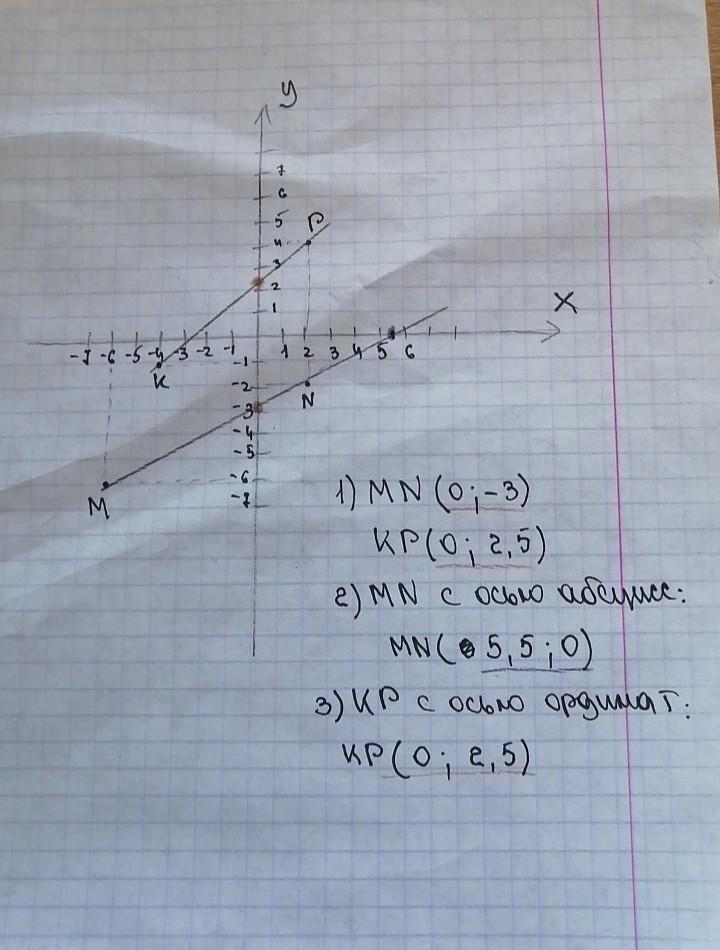 y
7
6
5
P
4
3
2
1
X
-7 -6 -5 -4 -3 -2 -1 1 2 3 4 5 6
K
-1
-2
N
-3
-4
-5
-6
M
-7
1) MN (0; -3)
KP (0; 2,5)
2) MN с осью абсцисс:
MN ( 5,5; 0)
3) KP с осью ординат:
KP (0; 2,5)